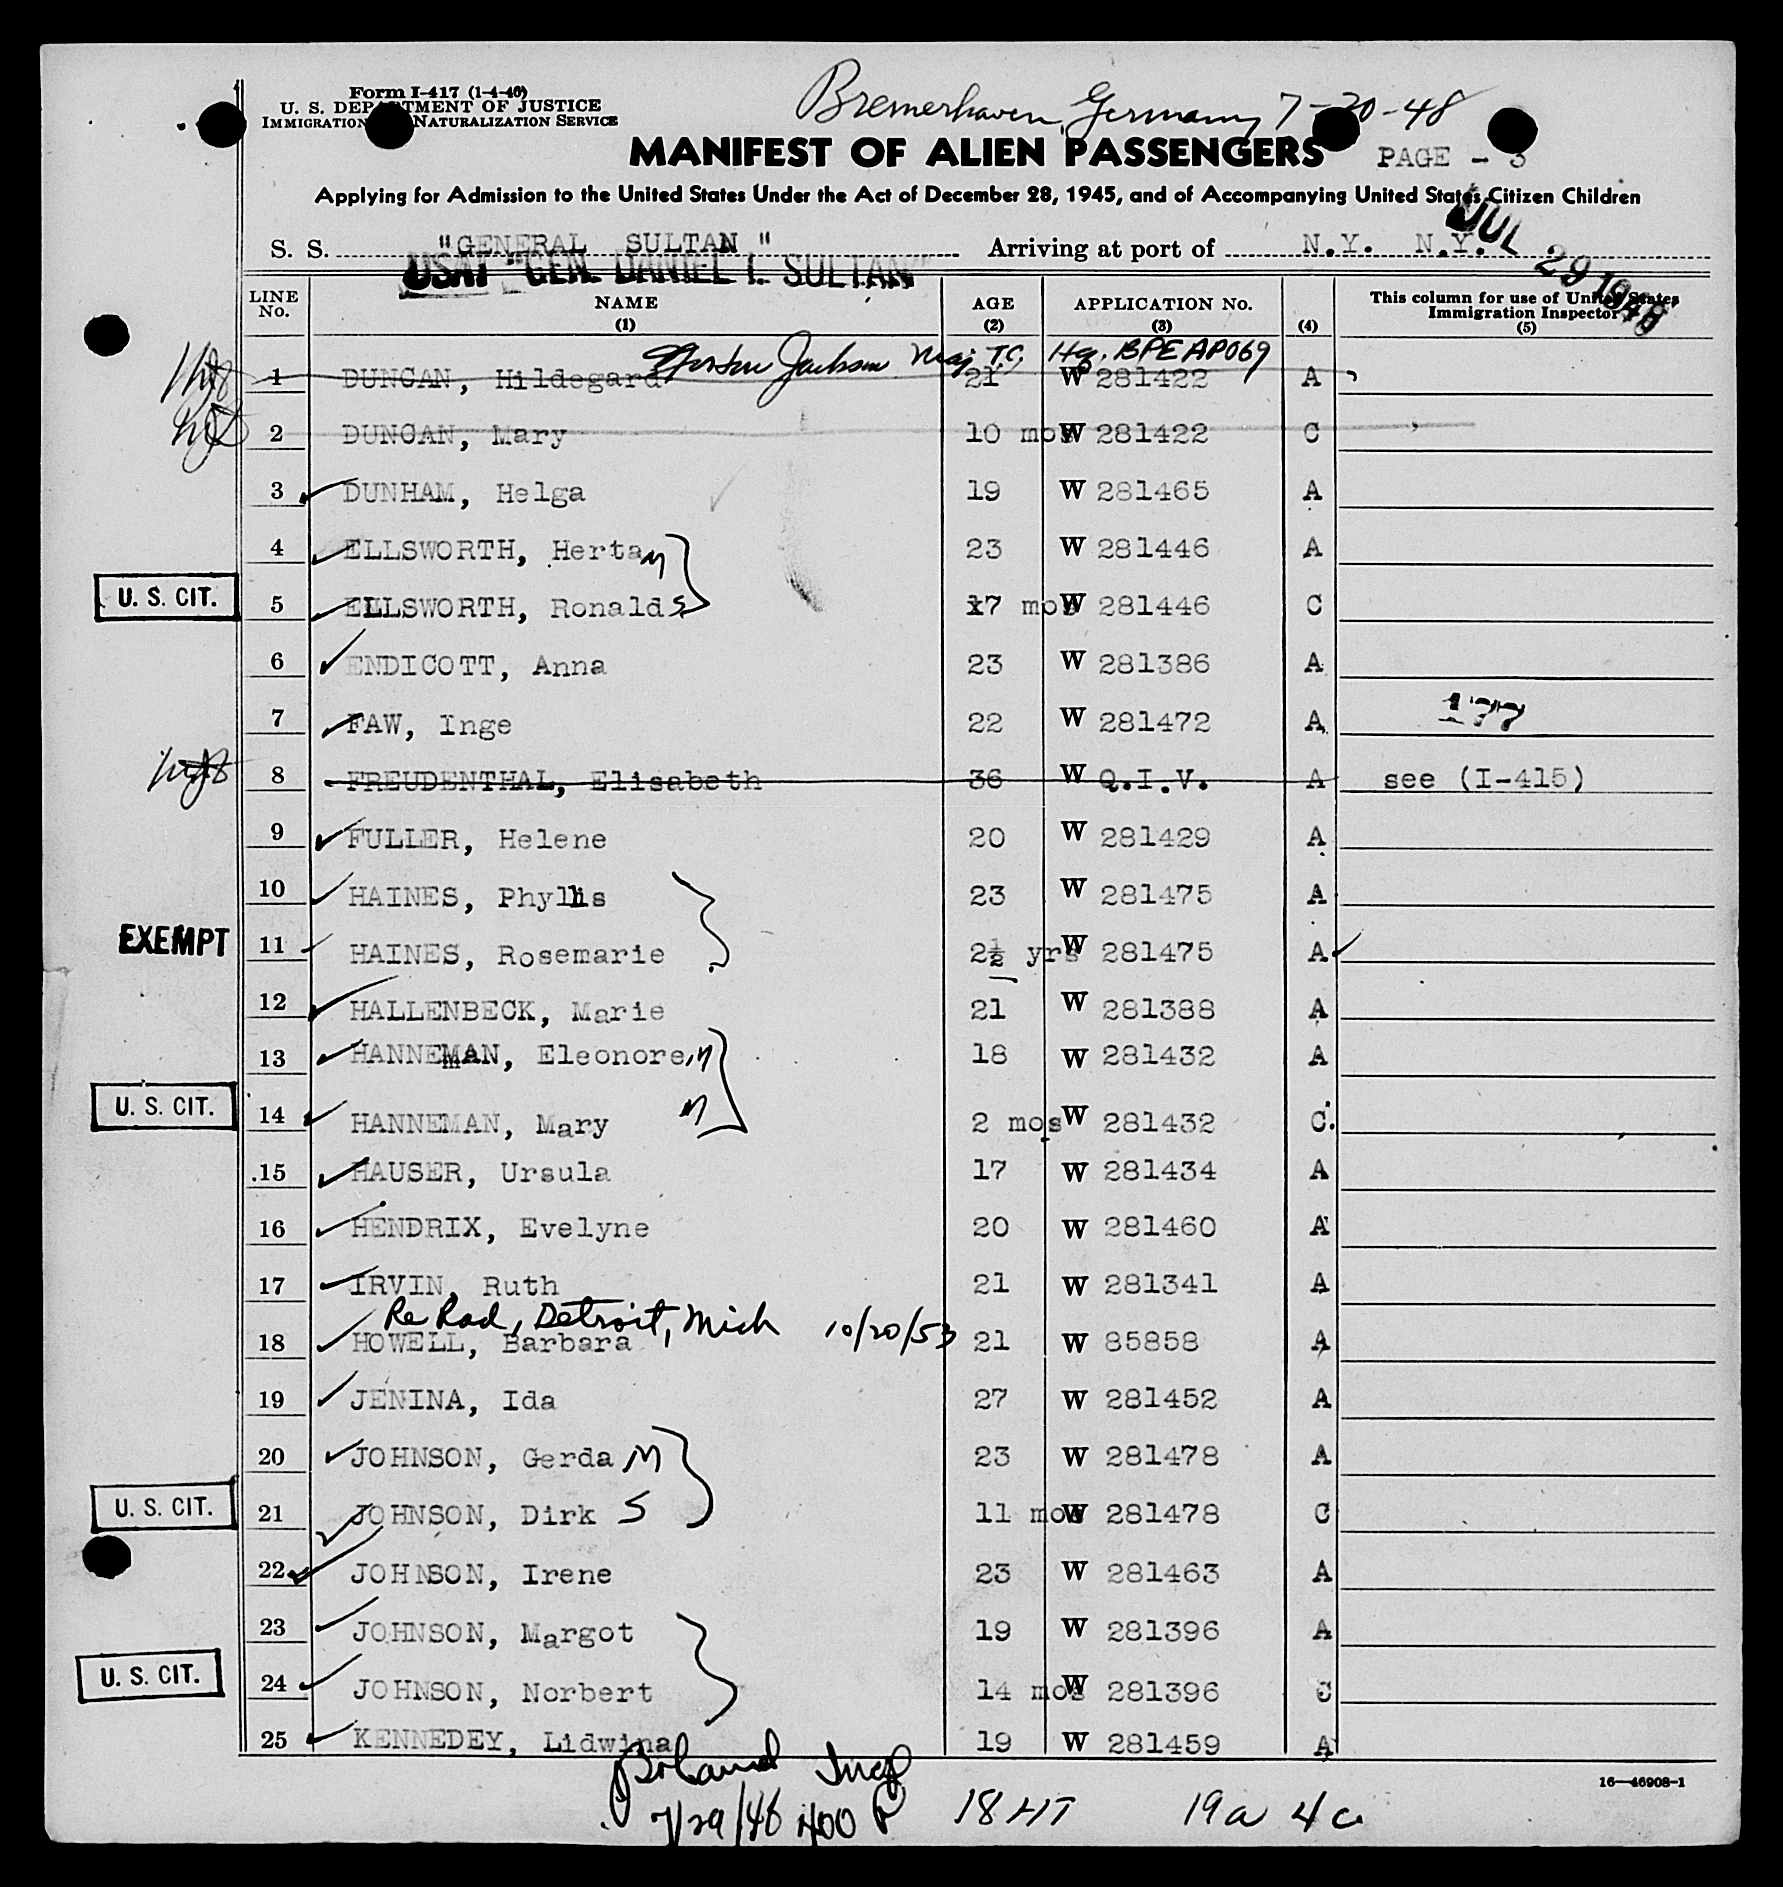 Form I-417 (1-4-46)
U. S. DEPARTMENT OF JUSTICE
IMMIGRATION NATURALIZATION SERVICE
Bremerhaven, Germany 7-20-48
MANIFEST OF ALIEN PASSENGERS PAGE - 3
Applying for Admission to the United States Under the Act of December 28, 1945, and of Accompanying United States Citizen Children
S. S. "GENERAL SULTAN" Arriving at port of N.Y. N.Y. JUL 29 1948
USAT "GEN. DANIEL I. SULTAN"
LINE No. NAME (1) AGE (2) APPLICATION No. (3) (4) This column for use of United States Immigration Inspector (5)
Jackson Maj T.C. Hq. BPE APO69
1 DUNCAN, Hildegard 21 W 281422 A
2 DUNCAN, Mary 10 mos W 281422 C
3 DUNHAM, Helga 19 W 281465 A
4 ELLSWORTH, Herta M 23 W 281446 A
U. S. CIT. 5 ELLSWORTH, Ronald S 17 mos W 281446 C
6 ENDICOTT, Anna 23 W 281386 A
7 FAW, Inge 22 W 281472 A 177
8 FREUDENTHAL, Elisabeth 36 W Q.I.V. A see (I-415)
9 FULLER, Helene 20 W 281429 A
10 HAINES, Phyllis 23 W 281475 A
EXEMPT 11 HAINES, Rosemarie 2½ yrs W 281475 A
12 HALLENBECK, Marie 21 W 281388 A
13 HANNEMAN, Eleonore M 18 W 281432 A
U. S. CIT. 14 HANNEMAN, Mary M 2 mos W 281432 C
15 HAUSER, Ursula 17 W 281434 A
16 HENDRIX, Evelyne 20 W 281460 A
17 IRVIN, Ruth 21 W 281341 A
Re Rad, Detroit, Mich 10/20/53
18 HOWELL, Barbara 21 W 85858 A
19 JENINA, Ida 27 W 281452 A
20 JOHNSON, Gerda M 23 W 281478 A
U. S. CIT. 21 JOHNSON, Dirk S 11 mos W 281478 C
22 JOHNSON, Irene 23 W 281463 A
23 JOHNSON, Margot 19 W 281396 A
U. S. CIT. 24 JOHNSON, Norbert 14 mos W 281396 C
25 KENNEDEY, Lidwina 19 W 281459 A
16—46908-1
7/29/48 400 P 18 HT 19a 4c